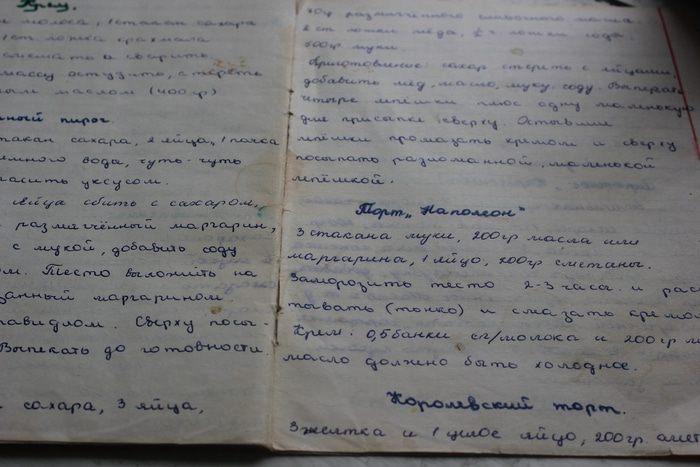 Крем.
молока, 1 стакан сахара
1 ст. ложка крахмала
смешать и сварить,
массу остудить, стереть
маслом (400 гр)
пирог
стакан сахара, 2 яйца, 1 пачка
немного вода, чуть-чуть
гасить уксусом.
Яйца сбить с сахаром,
размягчённый маргарин,
с мукой, добавить соду
ом. Тесто выложить на
маргарином
повидлом. Сверху посы-
Выпекать до готовности.
сахара, 3 яйца,
размягчённого сливочного масла
2 ст ложки мёда, ½ ч ложки соды
500 гр муки.
Приготовление: сахар стереть с яйцами,
добавить мёд, масло, муку, соду. Выпекать
четыре лепёшки плюс одну маленькую
для присыпки сверху. Остывшие
лепёшки промазать кремом и сверху
посыпать разломанной, маленькой
лепёшкой.
Торт „Наполеон"
3 стакана муки, 200 гр масла или
маргарина, 1 яйцо, 200 гр сметаны.
Заморозить тесто 2-3 часа и рас
тывать (тонко) и смазать кремо
Крем: 0,5 банки сг/молока и 200 гр м
масло должно быть холодное.
Королевский торт.
3 желтка и 1 целое яйцо, 200 гр. смет